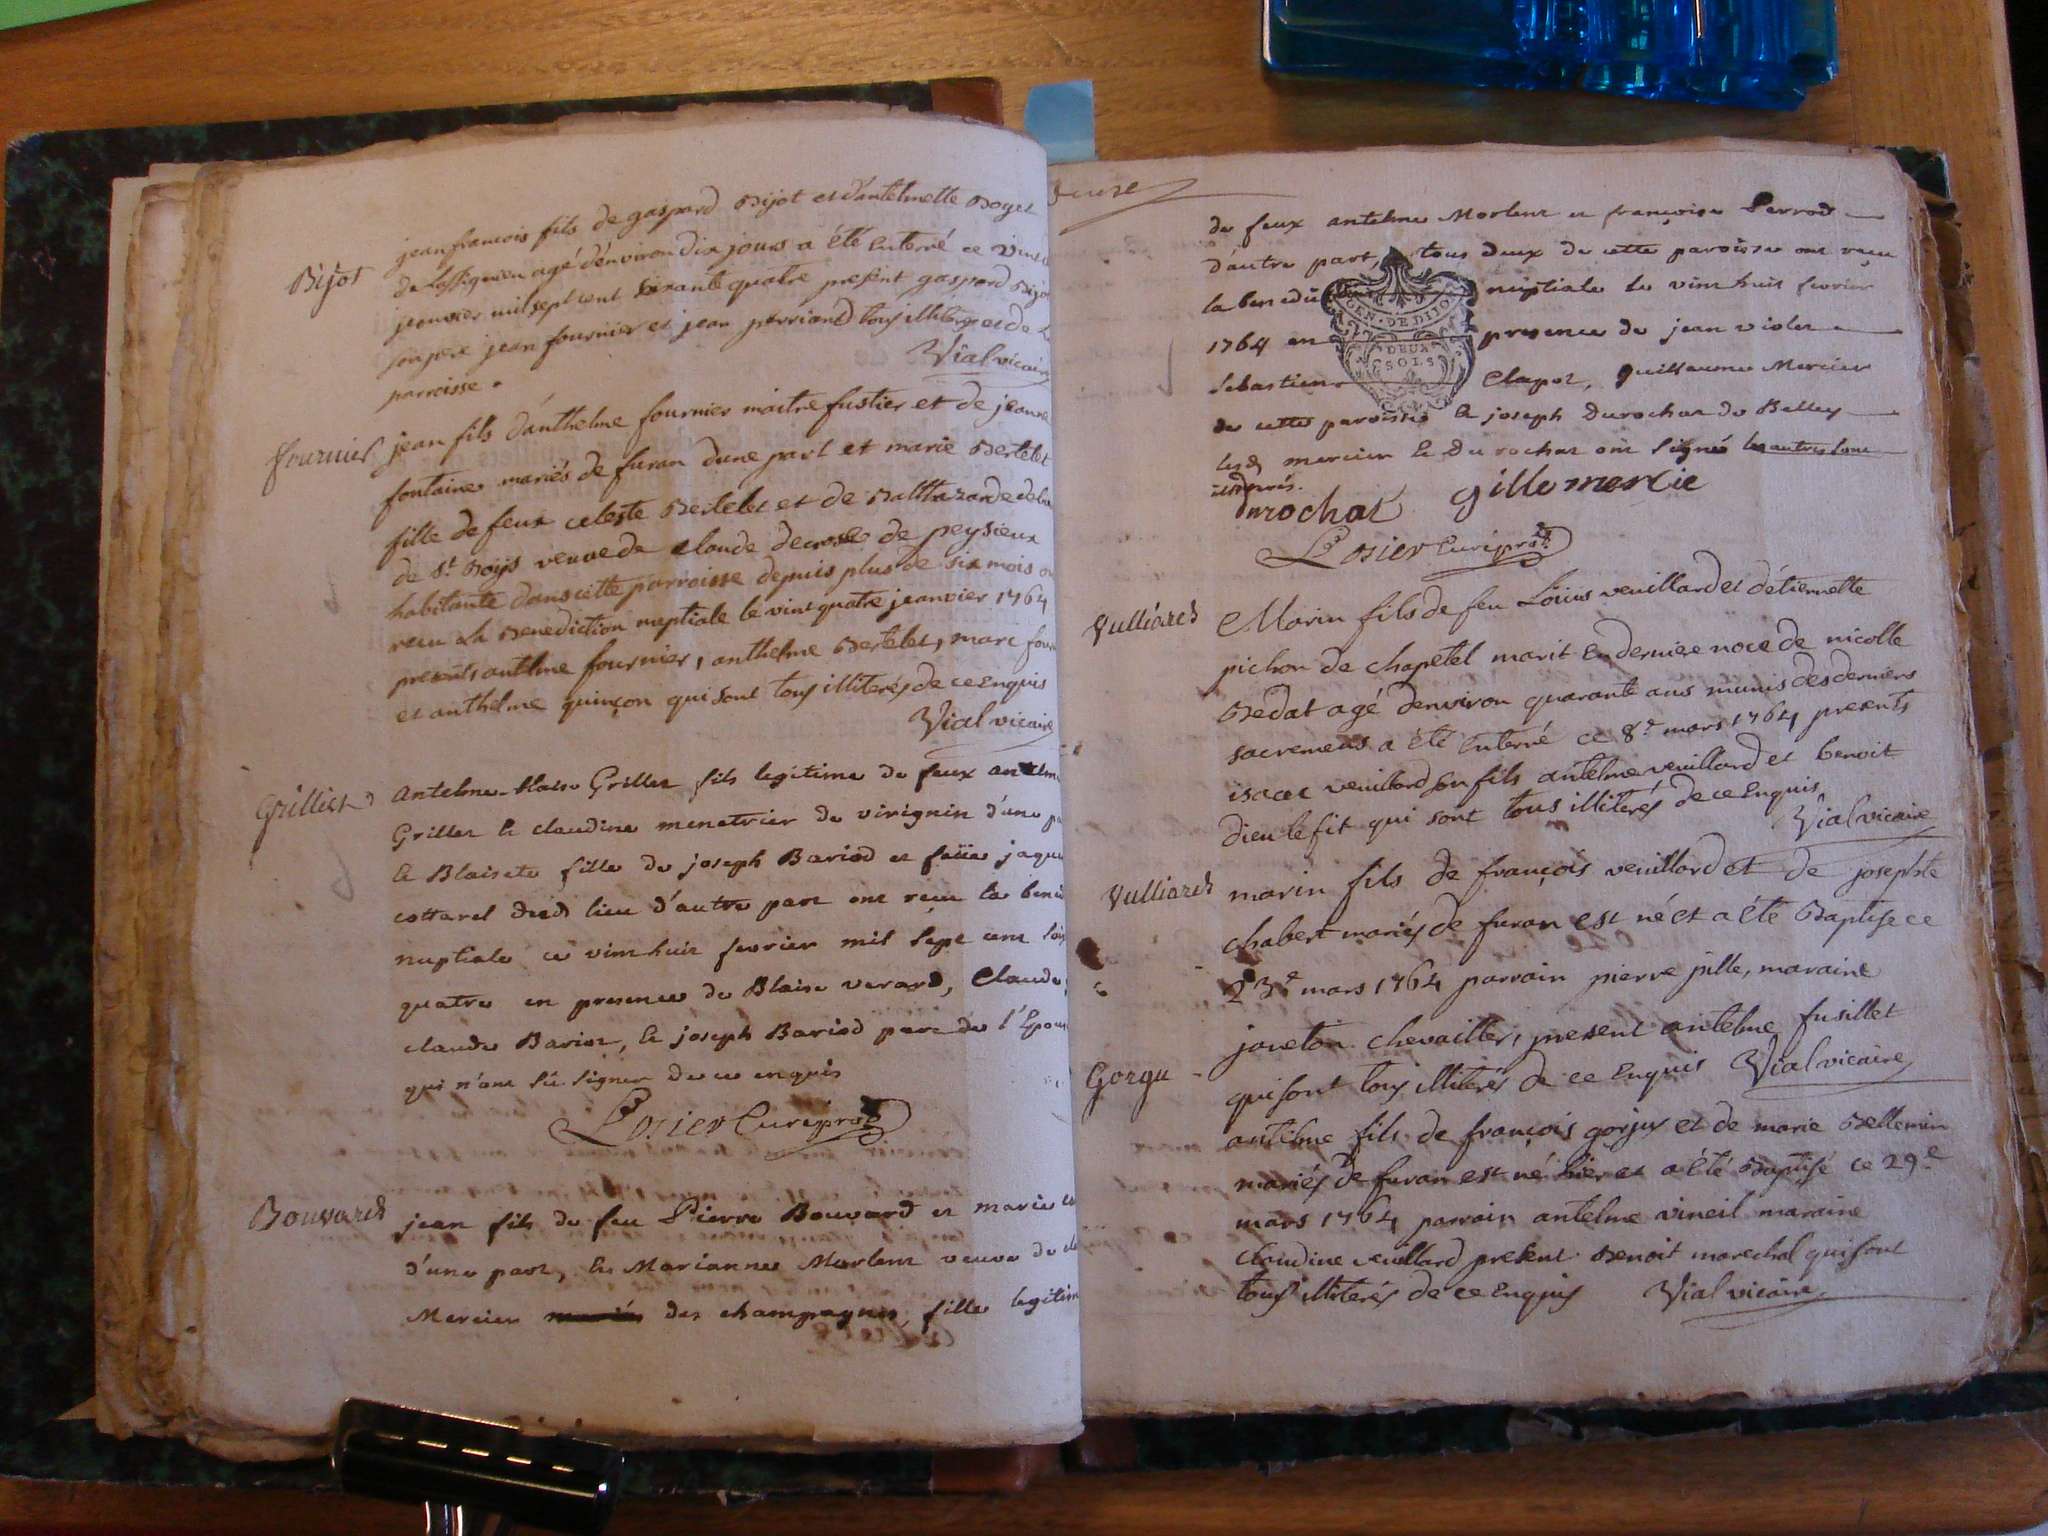 Bijot
jean francois fils de gaspard Bijot et d'antelmette Boget
de lassignieu agé d'environ dix jours a été Enterré ce vint
jeanvier mil sept cent soixante quatre present gaspard Bijot
son pere jean fournier et jean perriand tous illiterés et de
parroisse. Vial vicaire
fournier
jean fils d'anthelme fournier maitre fustier et de jeanne
fontaine mariés de furan dune part et marie Bertelet
fille de feux celeste Bertelet et de Balthazarde
de St. Boys veuve de claude decrose de peysieux
habitante dans cette parroisse depuis plus de six mois on
recu la Benediction nuptiale le vint quatre jeanvier 1764
presents antelme fournier, anthelme Bertelet, marc four
et anthelme quinçon qui sont tous illiterés de ce Enquis
Vial vicaire
Grillier
Antelme-blaise Griller fils legitime de feux antelme
Griller & claudine menetrier de virignin d'une pa
& Blaisete fille de joseph Bariod et feüe jaque
cottarel dud lieu d'autre part ont recu la bene
nuptiale ce vint huit fevrier mil sept cent soix
quatre en presence de Blaise verard, Claude
claude Barior, & joseph Bariod pere de l'Epou
qui n'ont sü signer de ce enquis
Losier curé
Bouvard
jean fils de feu Pierre Bouvard et marie
d'une part, & Marianne Morlent veuve de
Mercier des champagnes, fille legitim
de feux antelme Morlent et françoise Perrod
d'autre part, tous deux de cette paroisse ont recu
la benedi nuptiale le vint huit fevrier
1764 en presence de jean violet
sebastien Clapot, guillaume Mercier
de cette paroisse & joseph Durochat de Belley
lesd mercier & Durochat ont signé les autres sont
durochat gille mercie
Losier curé
Vulliard
Marin fils de feu Loüis veuillard et d'etiennette
pichon de chapetel marit En derniere noce de nicolle
Bedat agé d'environ quarante ans munis des derniers
sacremens a été Enterré ce 8e mars 1764 presents
isaac veuillard son fils antelme veuillard et benoit
dieulefit qui sont tous illiterés de ce Enquis
Vial vicaire
Vulliard
marin fils de françois veuillard et de josephte
chabert mariés de furan est né et a été Baptisé ce
23e mars 1764 parrain pierre julle, maraine
joueton chevaillier, present antelme fusillet
qui sont tous illiterés de ce Enquis Vial vicaire
Gorgu
antelme fils de françois gorjux et de marie Bellemin
mariés de furan est né hier et a été Baptisé ce 29e
mars 1764 parrain antelme vineil maraine
claudine veuillard present Benoit marechal qui sont
tous illiterés de ce Enquis Vial vicaire
GEN. DE DIJON
DEUX
SOLS